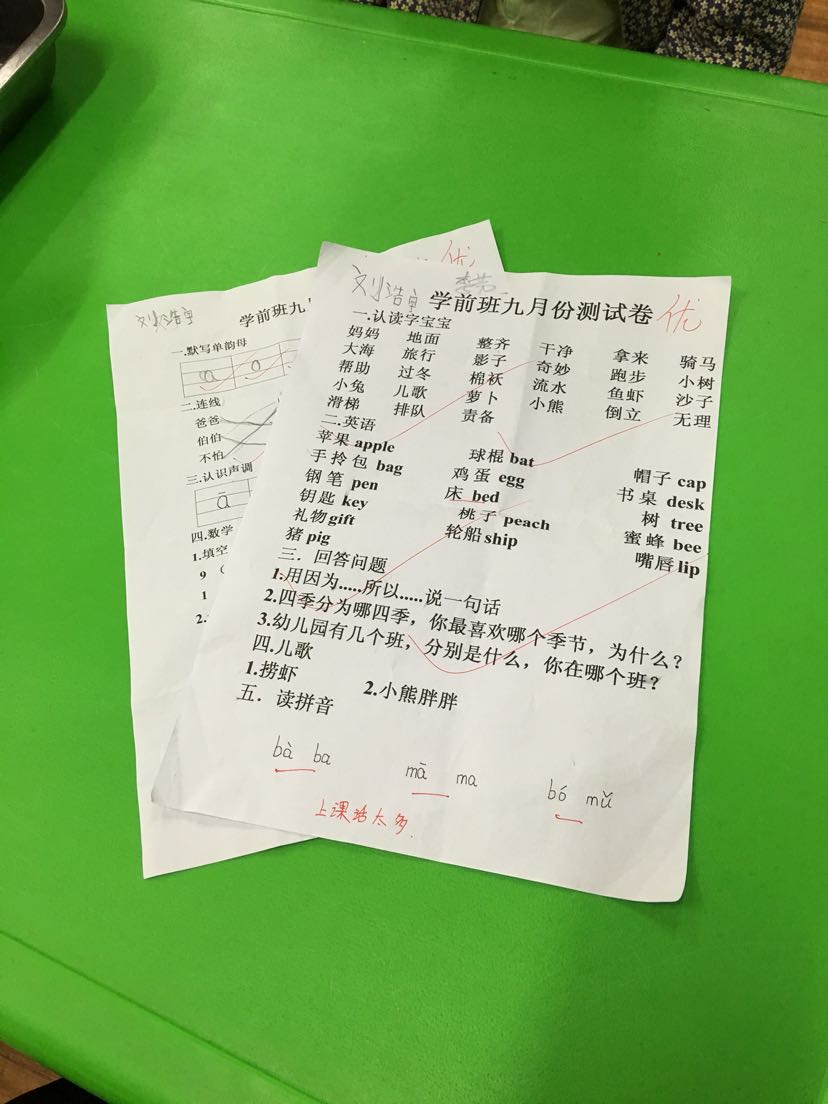 刘浩宇 学前班九月份测试卷 优
一.认读字宝宝
妈妈 地面 整齐 干净 拿来 骑马
大海 旅行 影子 奇妙 跑步 小树
帮助 过冬 棉袄 流水 鱼虾 沙子
小兔 儿歌 萝卜 小熊 倒立 无理
滑梯 排队 责备
二.英语
苹果 apple 球棍 bat 帽子 cap
手拎包 bag 鸡蛋 egg 书桌 desk
钢笔 pen 床 bed 树 tree
钥匙 key 桃子 peach 蜜蜂 bee
礼物 gift 轮船 ship 嘴唇 lip
猪 pig
三．回答问题
1.用因为.....所以.....说一句话
2.四季分为哪四季，你最喜欢哪个季节，为什么？
3.幼儿园有几个班，分别是什么，你在哪个班？
四.儿歌
1.捞虾 2.小熊胖胖
五．读拼音
bà ba mā ma bó mǔ
上课话太多.
刘浩宇 学前班九月 优
一.默写单韵母
a o
二.连线
爸爸
伯伯
不怕
三.认识声调
ā
四.数学
1.填空
9（
1
2.